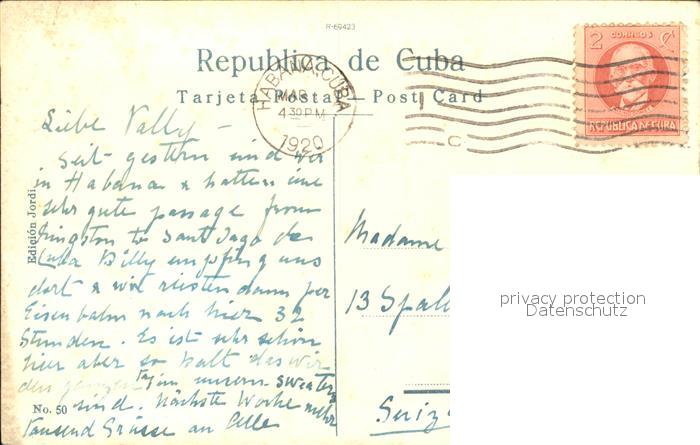 R-69423
Republica de Cuba
Tarjeta Postal — Post Card
HABANA, CUBA
MAR
4 30 PM
1920
C
2 CORREOS C
REPUBLICA DE CUBA
Liebe Vally —
Seit gestern sind wir
in Habana & hatten eine
sehr gute passage from
Kingston to Santiago de
Cuba Billy empfing uns
dort & wir reisten dann per
Eisenbahn nach hier 32
Stunden. Es ist sehr schön
hier aber so kalt das wir
den ganzen Tag in unsern sweaters
sind. Nächste Woche mehr
Tausend Grüsse an Alle
Edición Jordi.
No. 50
Madame
13 Spal
Suiz
privacy protection
Datenschutz